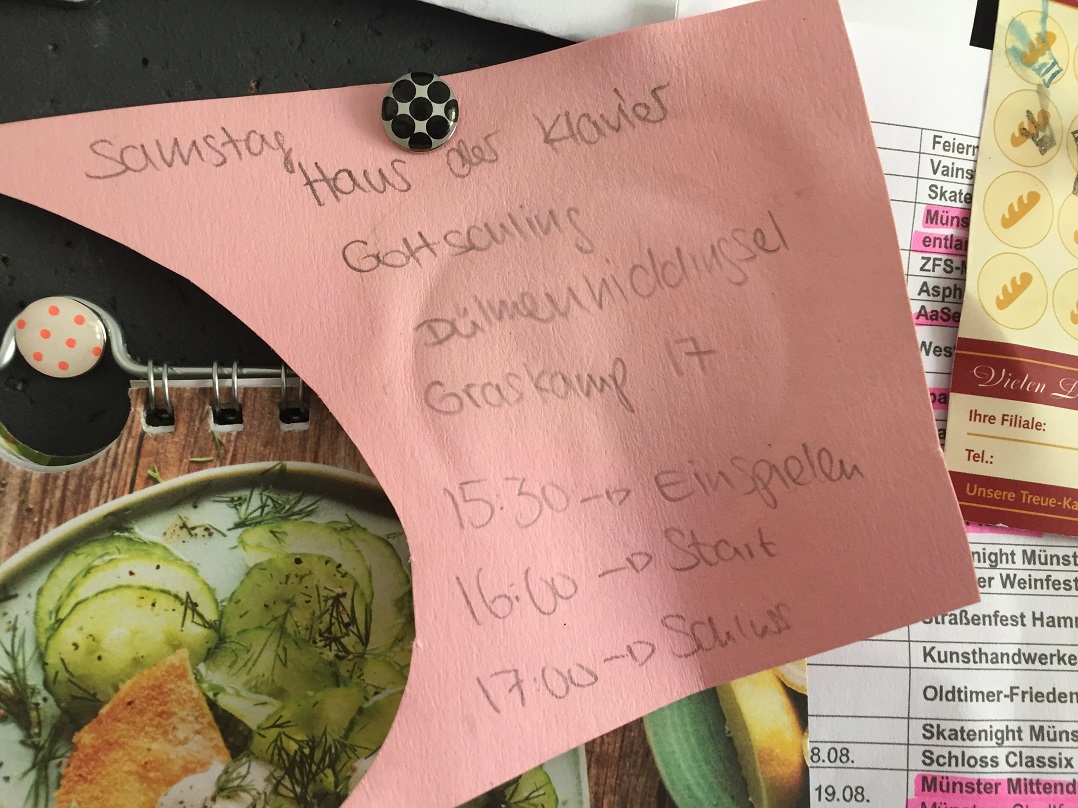 Samstag
Haus der Klavier
Gottschling
Dülmenhiddingsel
Graskamp 17
15:30 → Einspielen
16:00 → Start
17:00 → Schluss
Feiern
Vains
Skate
Müns
entlan
ZFS-M
Asph
AaSe
Wes
Vielen D
Ihre Filiale:
Tel.:
Unsere Treue-Ka
night Münst
er Weinfest
traßenfest Ham
Kunsthandwerke
Oldtimer-Frieden
Skatenight Müns
8.08. Schloss Classix
19.08. Münster Mittend